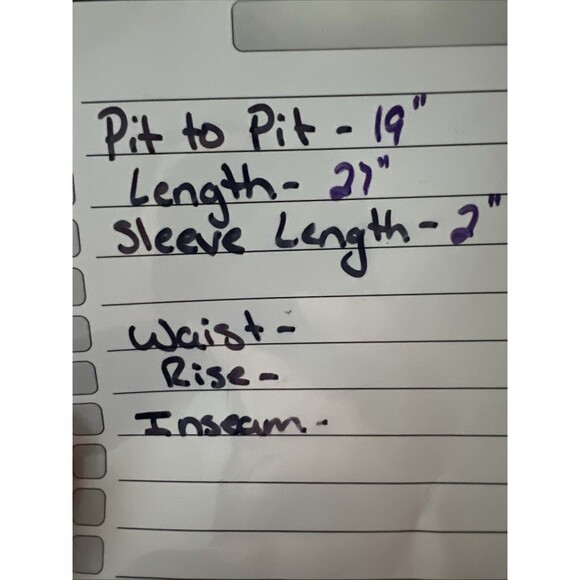 Pit to Pit - 19"
Length - 27"
Sleeve Length - 2"
Waist -
Rise -
Inseam -